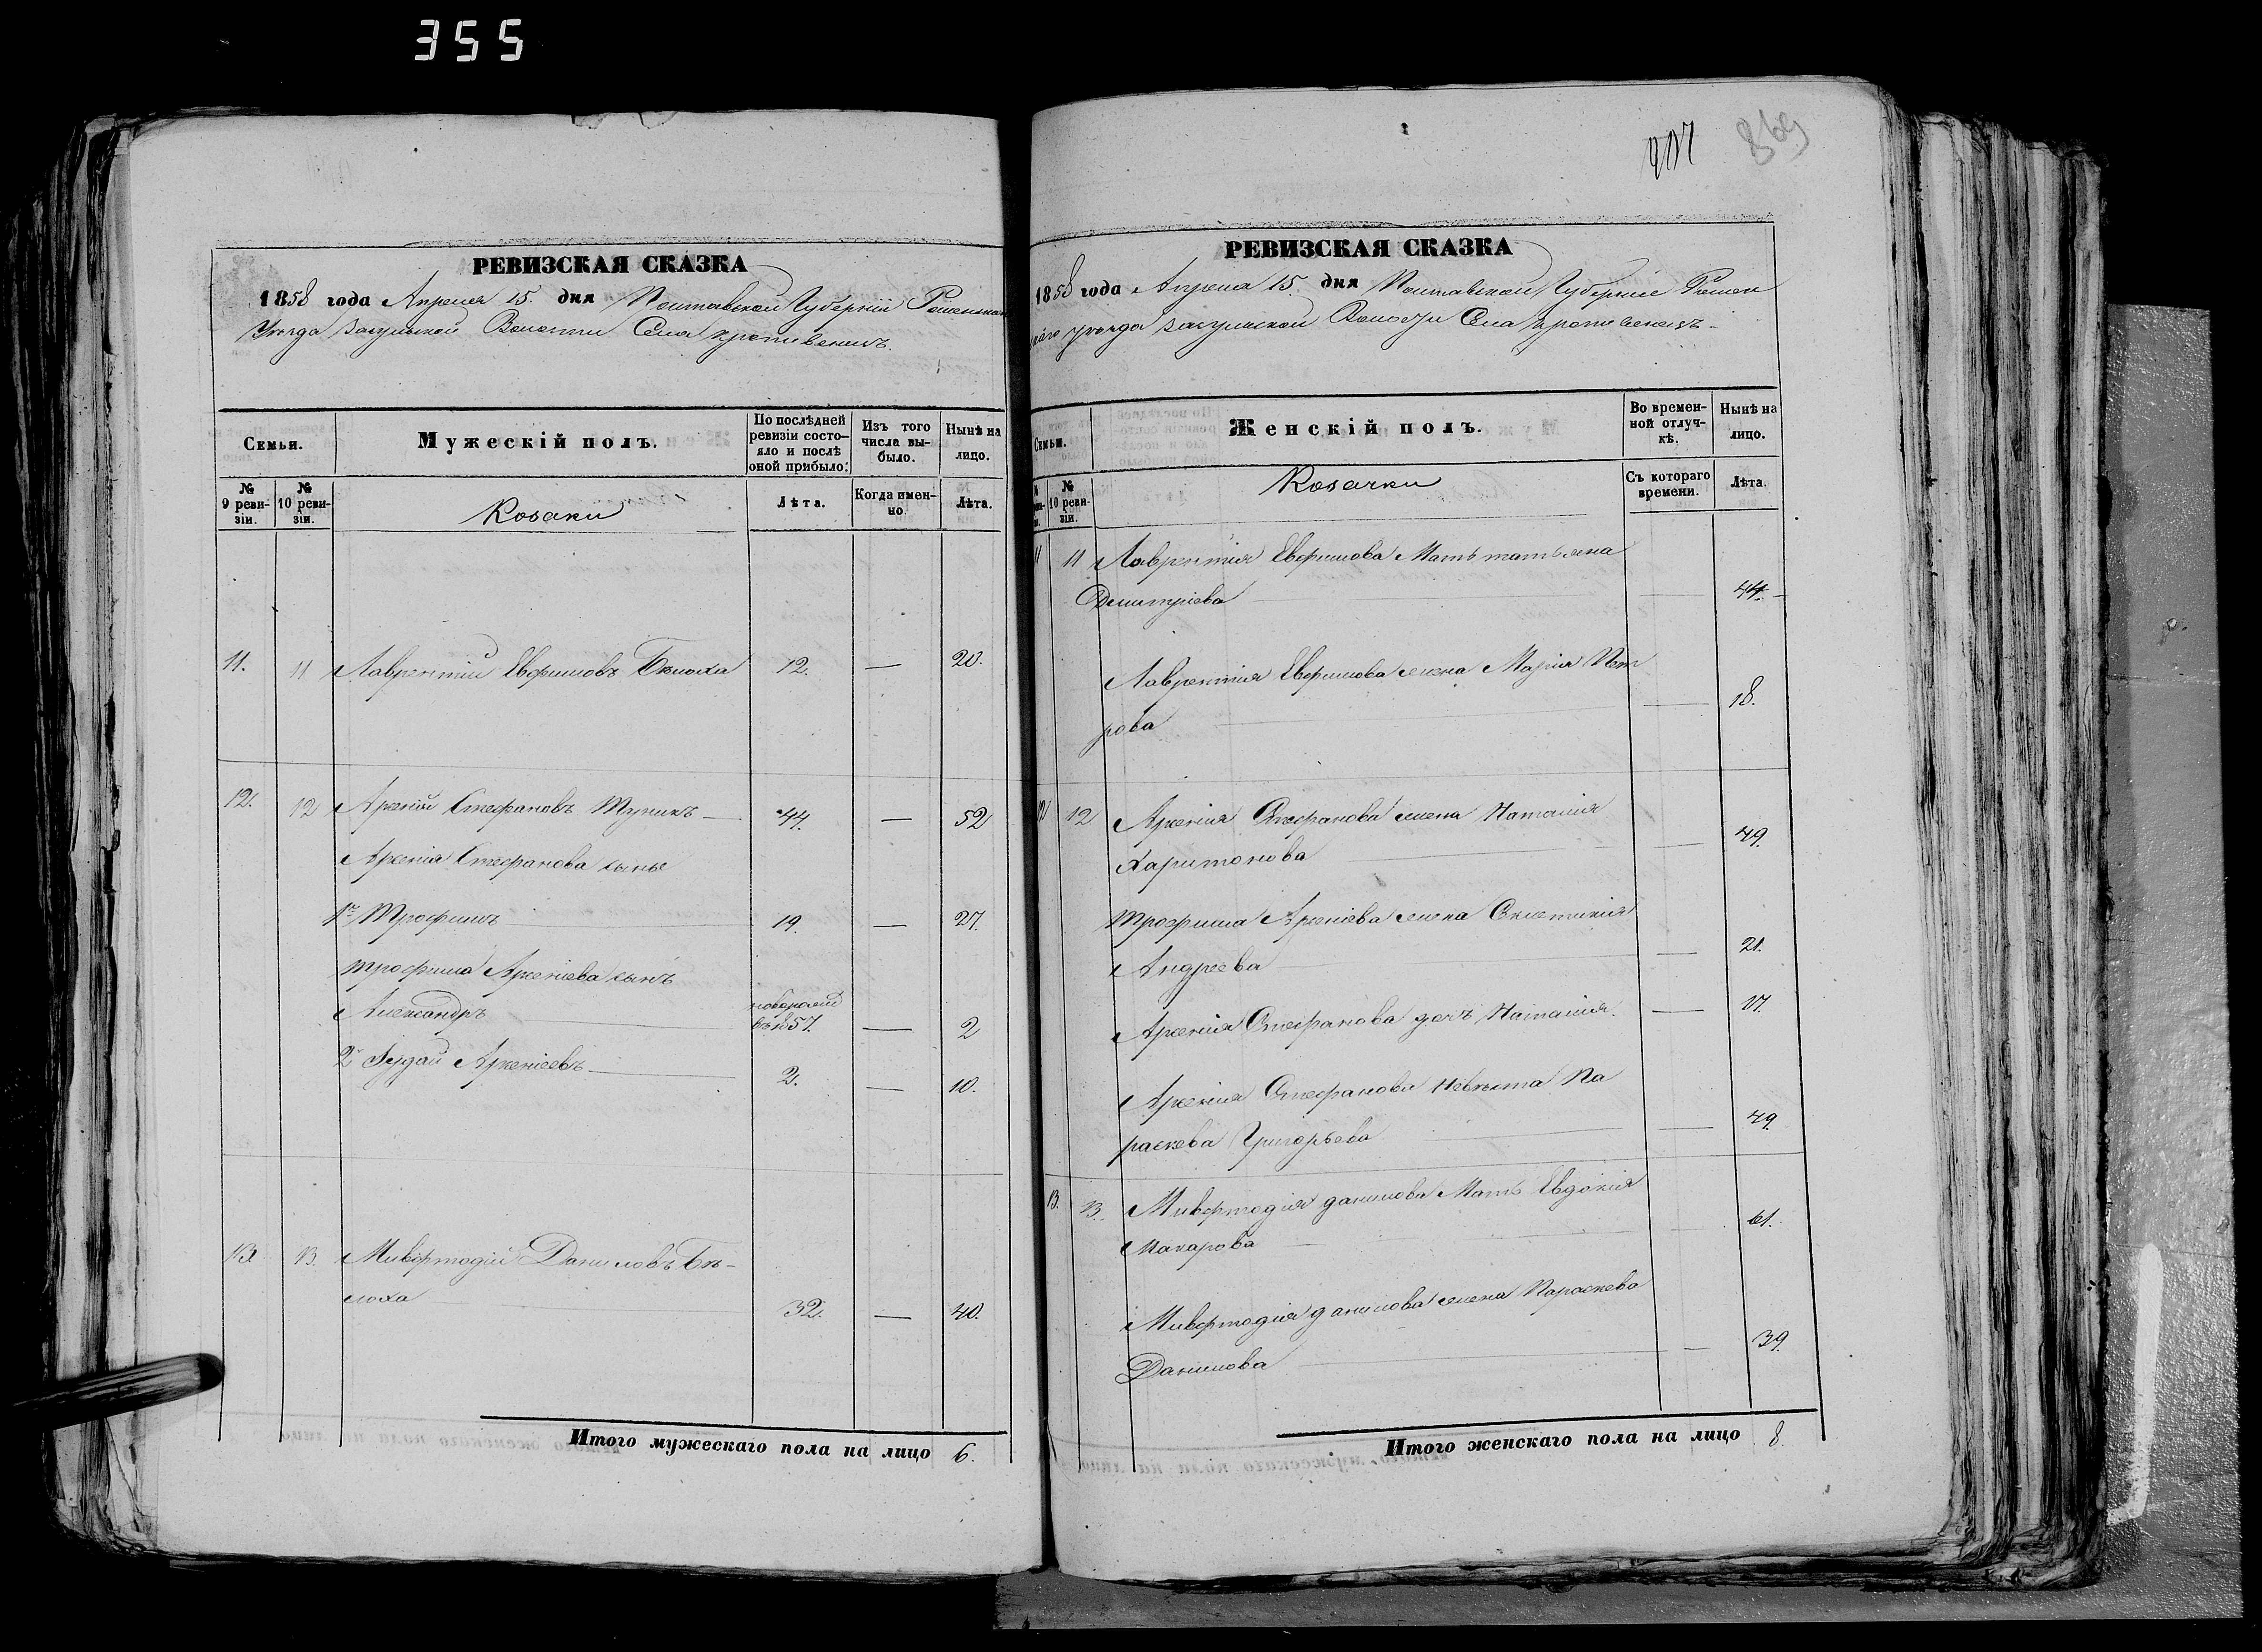 355
869
РЕВИЗСКАЯ СКАЗКА
1858 года Апреля 15. дня Полтавской Губерніи Роменскаго
Уезда Засульской Волости Села Кропивенецъ.
Семьи.
Мужескій полъ.
По послѣдней ревизіи состо-
яло и послѣ
оной прибыло:
Изъ того
числа вы-
было.
Нынѣ на
лицо.
№ 9 реви-
зіи.
№ 10 реви-
зіи.
Козаки
Лѣта.
Когда имен-
но.
Лѣта.
11. 11 Лаврентій Евфимовъ Бѣлоха 12. — 20.
12. 12 Арсеній Стефановъ — 44. — 52
Арсенія Стефанова сынье
1й Трофимъ 19. — 27.
Трофима Арсеніева сынъ
Александръ
въ 1857. — 2
2й Арсеніевъ 2. — 10.
13. 13. Даниловъ Бѣ-
лоха 32. — 40.
Итого мужескаго пола на лицо 6.
РЕВИЗСКАЯ СКАЗКА
1858 года Апреля 15. дня Полтавской Губерніи Ромен
скаго уезда Засульской Волости Села Кропивенецъ
Семьи.
Женскій полъ.
Во времен-
ной отлуч-
кѣ.
Нынѣ на
лицо.
№
10 реви-
зіи.
Козачки
Съ котораго
времени.
Лѣта.
11 11 Лаврентія Евфимова Мать татьяна
Дмитріева — 44.
Лаврентія Евфимова жена Марія Пет
рова — 18.
12 12 Арсенія Стефанова жена Наталія
Харитонова — 49.
Трофима Арсеніева жена Склетикія
Андреева — 21.
Арсенія Стефанова дочь Наталія. — 17.
Арсенія Стефанова невѣстка Па
раскева Григорьева — 49.
13. 13. данилова Мать Евдокія
Макарова 61.
данилова жена Параскева
Данилова — 39.
Итого женскаго пола на лицо 8.